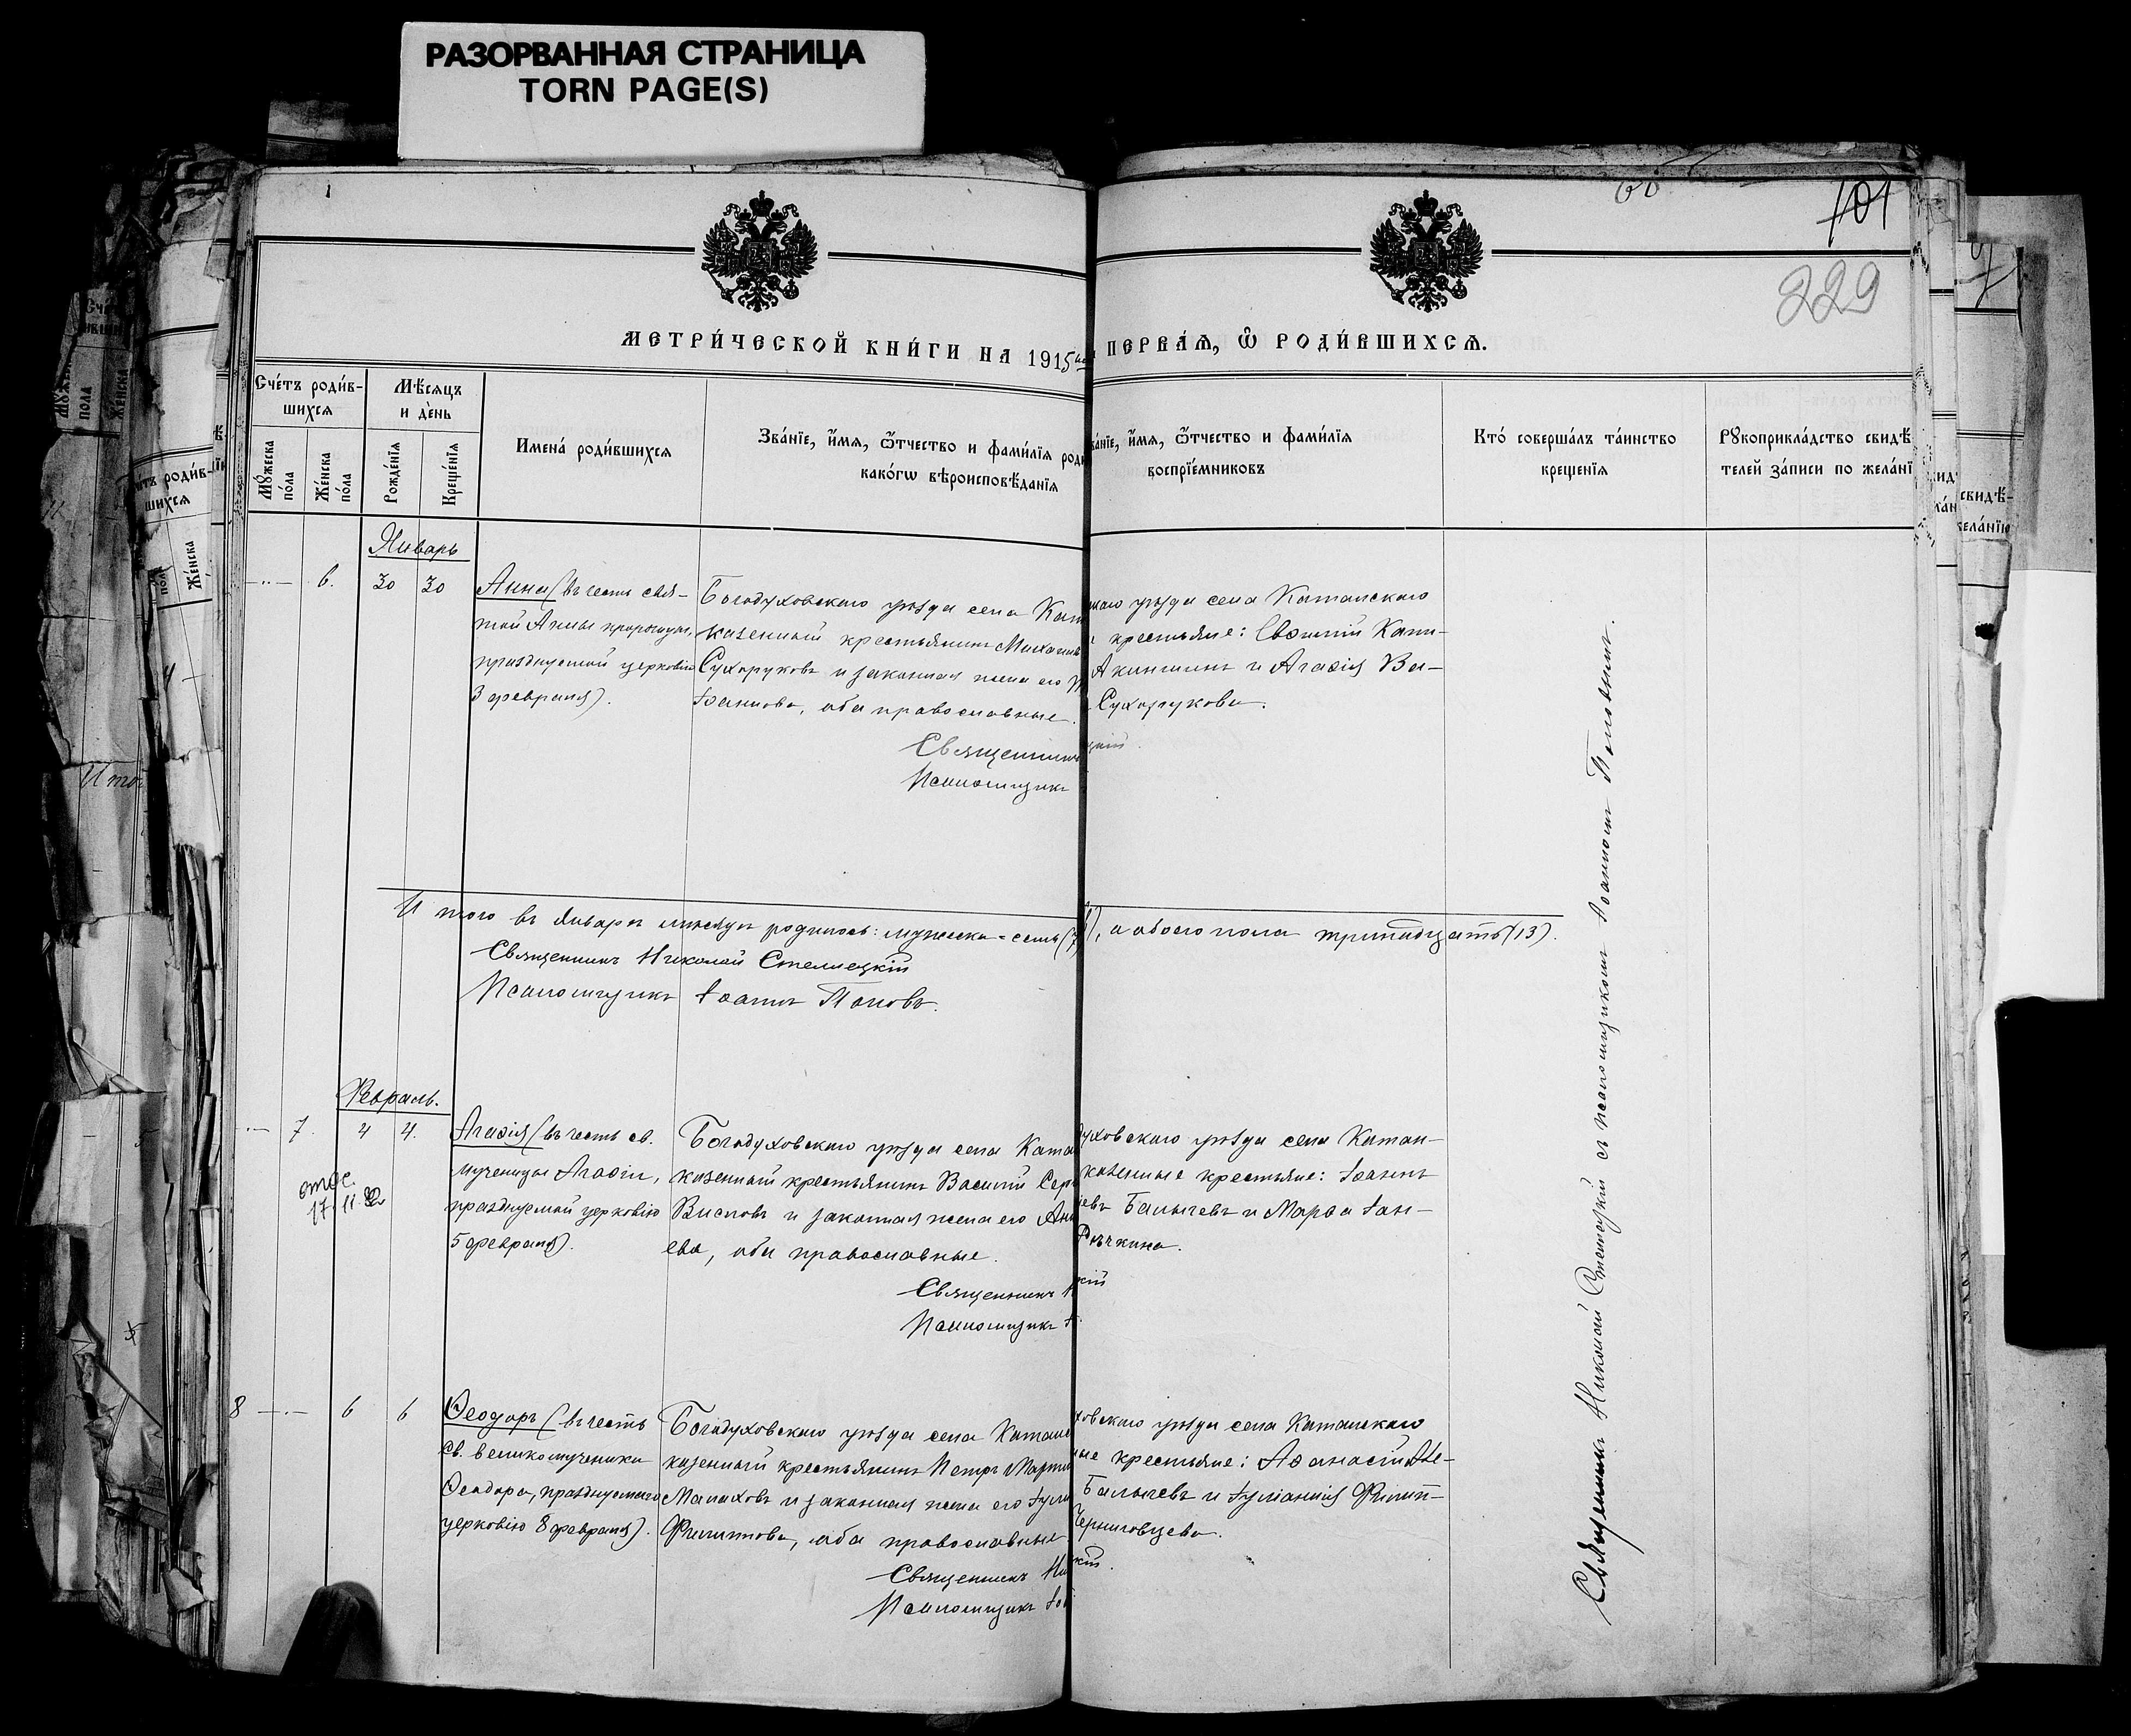 РАЗОРВАННАЯ СТРАНИЦА
TORN PAGE(S)
101
229
МЕТРИ́ЧЕСКОЙ КНИ́ГИ НА 1915
ПЕРВА́Ѧ, Ѽ РОДИ́ВШИХСѦ.
Сче́тъ роди́в-
шихсѧ
Мꙋ́жеска по́ла
Же́нска по́ла
Мѣ́сѧцъ
и де́нь
Рожде́нїѧ
Креще́нїѧ
Имена́ роди́вшихсѧ
Зва́нїе, и҆́мѧ, ѻ҆́тчество и фами́лїѧ роди
како́гѡ вѣроисповѣ́данїѧ
ва́нїе, и҆́мѧ, ѻ҆́тчество и фами́лїѧ
воспрїе́мниковъ
Кто́ соверша́лъ та́инство
креще́нїѧ
Рꙋкоприкла́дство свидѣ́
телей за́писи по жела́нї
Январь
6. 30 30
Анна (въ честь свя-
той Анны пророчицы,
празднуемой церковію
3 февраля).
Богодуховскаго уѣзда села Кат
казенный крестьянинъ Михаилъ
Сухоруковъ и законная жена его
Іоаннова, оба православные.
Священникъ
Псаломщикъ
скаго уѣзда села Катанскаго
крестьяне:
Акиншинъ и Агаѳія Ва-
Сухорукова.
цкій.
И того въ январѣ мѣсяцѣ родилось: мужеска - семь (7
), а обоего пола тринадцать (13).
Священникъ Николай Стеллецкій
Псаломщикъ Іоаннъ Поповъ.
Февраль.
7. 4 4.
Агаѳія (въ честь св.
мученицы Агаѳіи,
празднуемой церковію
5 февраля).
Богодуховскаго уѣзда села Ката
казенный крестьянинъ Василій Сер
и законная жена его Ан
ева, оба православные.
Священникъ Н
Псаломщикъ І
духовскаго уѣзда села Катан-
казенные крестьяне: Іоаннъ
евъ Балычевъ и Марѳа Іан-
Рѣчкина.
кій
8 6 6
Ѳеодоръ (въ честь
св. великомученика
Ѳеодора, празднуемаго
церковію 8 февраля).
Богодуховскаго уѣзда села Катанс
казенный крестьянинъ Петръ Марти
Малаховъ и законная жена его Іули
Филиппова, оба православные.
Священникъ Ни
Псаломщикъ Іо
ховскаго уѣзда села Катанскаго
ные крестьяне: Аѳанасій Але-
Балычевъ и Іуліанія Филип-
Черниговцева.
кій.
Священникъ Николай Стеллецкій съ псаломщикомъ Іоанномъ Поповымъ.